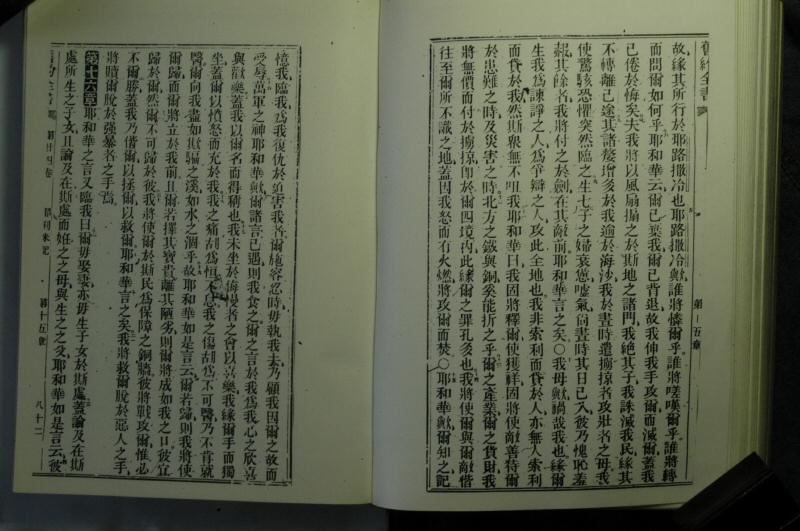 舊約全書
第十五章
故緣其所行於耶路撒冷也耶路撒冷歟誰將憐爾乎誰將嗟嘆爾乎誰將轉
而問爾如何乎耶和華云爾已棄我爾已背退故我伸我手攻爾而滅爾蓋我
已倦於悔矣夫我將以風扇搧之於斯地之諸門我絕其子我誅滅我民緣其
不轉離己途其諸嫠增多於我逾於海沙我於晝時遣擄掠者攻壯者之母我
使驚駭恐懼突然臨之生七子之婦衰憊噓氣尚晝時其日已入彼乃愧恥羞
赧其餘者我將付之於劍在其敵前耶和華言之矣○我母歟禍哉我也緣爾
生我為諫諍之人為爭辯之人攻此全地也我非索利而貸於人亦無人索利
而貸於我然斯眾無不咀我耶和華曰我固將釋爾使獲祥固將使敵善待爾
於患難之時及災害之時北方之鐵與銅奚能折之乎爾之產業爾之貨財我
將無價而付於擄掠即於爾四境內此緣爾之罪孔多也我將使爾與爾敵偕
往至爾所不識之地蓋因我怒而有火燃將攻爾而焚○耶和華歟爾知之記
憶我臨我為我復仇於迫害我者爾施容忍時毋執我去乃顧我因爾之故而
受辱萬軍之神耶和華歟爾諸言已遇則我食之爾之言於我為我心之欣喜
與歡樂蓋我以爾名而得稱也我未坐於侮曼者之會以喜樂我緣爾手而獨
坐蓋爾以憤怒而充於我我之痛胡為恒不息我之傷胡為不可醫乃不肯就
醫爾向我盡如欺騙之溪如水之涸乎故耶和華如是言云爾若歸則我將使
爾歸而爾將立於我前且爾若擇其寶貴離其陋劣則爾將成如我之口彼宜
歸於爾然爾不可歸於彼我將使爾於斯民為保障之銅牆彼將戰攻爾惟必
不爾勝蓋我乃偕爾以拯爾以救爾耶和華言之矣我將救爾脫於惡人之手
將贖爾脫於強暴者之手焉
第十六章耶和華之言又臨我曰爾毋娶妻亦毋生子女於斯處蓋論及在斯
處所生之子女且論及在斯處而妊之之母與生之之父耶和華如是言云彼
舊約全書
第廿四卷
耶利米記
第十五章
八十二